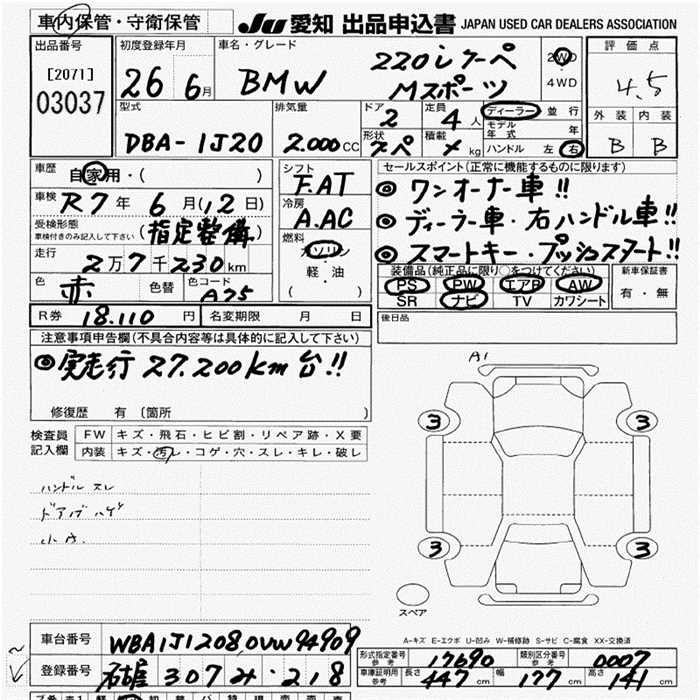 車内保管・守衛保管
JU 愛知 出品申込書 JAPAN USED CAR DEALERS ASSOCIATION
出品番号
[2071]
03037
初度登録年月
26 6月
車名・グレード
BMW 220i クーペ
Mスポーツ
2WD
・
4WD
評価点
4.5
外装 内装
B B
型式
DBA-1J20
排気量
2.000cc
ドア
2
形状
クーペ
定員
4人
積載
kg
ディーラー 並行
モデル年式 年
ハンドル 左 右
車歴 自家用・( )
車検 R7年 6月(12日)
受検形態
車検付きのみ記入して下さい
(指定整備)
走行
2万7千230km
色 赤 色替 色コード A75
R券 18.110円 名変期限 月 日
シフト
F.AT
冷房
A.AC
燃料
ガソリン
・
軽・油
( )
セールスポイント(正常に機能するものに限ります)
◎ワンオーナー車!!
◎ディーラー車・右ハンドル車!!
◎スマートキー・プッシュスタート!!
装備品(純正品に限り○をつけてください)
PS PW エアB AW
SR ナビ TV カワシート
新車保証書
有・無
後日品
注意事項申告欄(不具合内容等は具体的に記入して下さい)
◎実走行 27.200km台!!
修復歴 有 (箇所 )
検査員記入欄
FW キズ・飛石・ヒビ割・リペア跡・X要
内装 キズ・汚レ・コゲ・穴・スレ・キレ・破レ
ハンドル スレ
A1
3 3
3 3
スペア
A-キズ E-エクボ U-凹み W-補修跡 S-サビ C-腐食 XX-交換済
車台番号 WBA1J1208,0VW94909
登録番号 307 み・218
形式指定番号
参考
17690
類別区分番号
参考
0007
車庫証明用
参考
長さ 447cm 幅 177cm 高さ 141cm